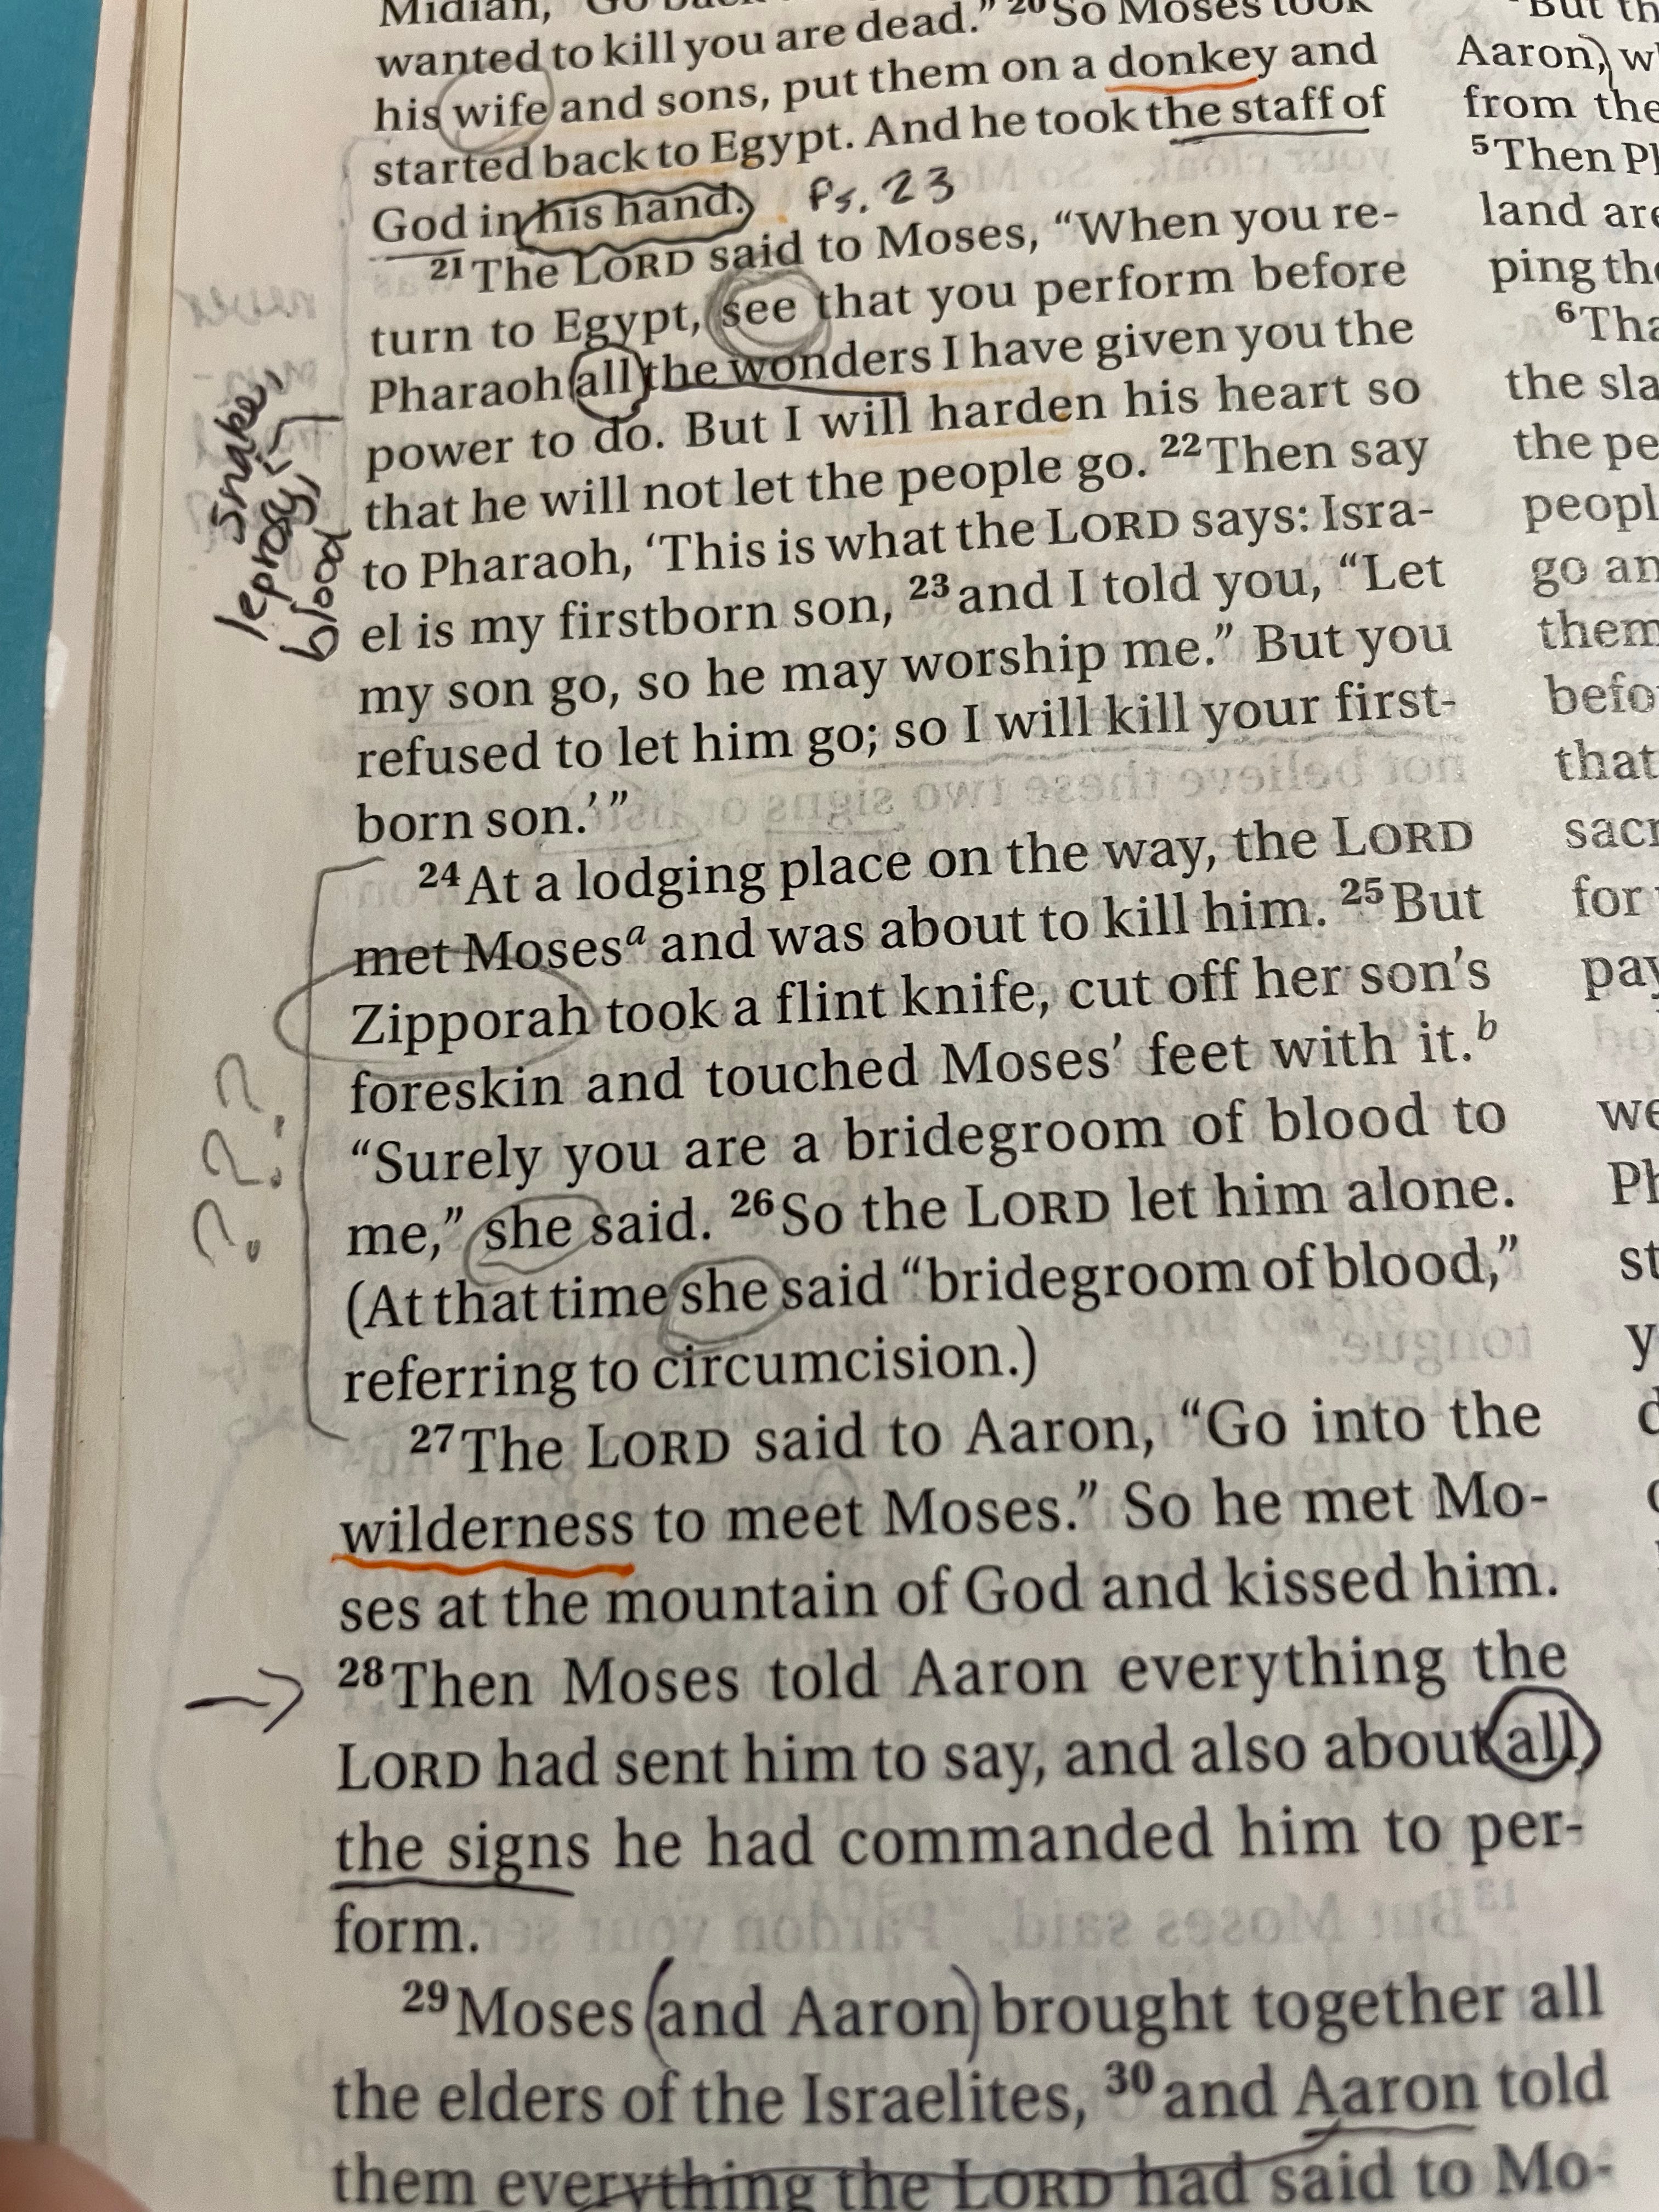 Midian, "Go back
wanted to kill you are dead." 20 So Moses took
his wife and sons, put them on a donkey and
started back to Egypt. And he took the staff of
God in his hand. Ps. 23
21 The LORD said to Moses, "When you re-
turn to Egypt, see that you perform before
Pharaoh all the wonders I have given you the
power to do. But I will harden his heart so
that he will not let the people go. 22 Then say
to Pharaoh, 'This is what the LORD says: Isra-
el is my firstborn son, 23 and I told you, "Let
my son go, so he may worship me." But you
refused to let him go; so I will kill your first-
born son.'"
24 At a lodging place on the way, the LORD
met Moses a and was about to kill him. 25 But
Zipporah took a flint knife, cut off her son's
foreskin and touched Moses' feet with it. b
"Surely you are a bridegroom of blood to
me," she said. 26 So the LORD let him alone.
(At that time she said "bridegroom of blood,"
referring to circumcision.)
27 The LORD said to Aaron, "Go into the
wilderness to meet Moses." So he met Mo-
ses at the mountain of God and kissed him.
28 Then Moses told Aaron everything the
LORD had sent him to say, and also about all
the signs he had commanded him to per-
form.
29 Moses and Aaron brought together all
the elders of the Israelites, 30 and Aaron told
them everything the LORD had said to Mo-
snake,
leprosy,
blood
???
But
Aaron,
from the
5 Then
land
ping
6
the
the
go
for